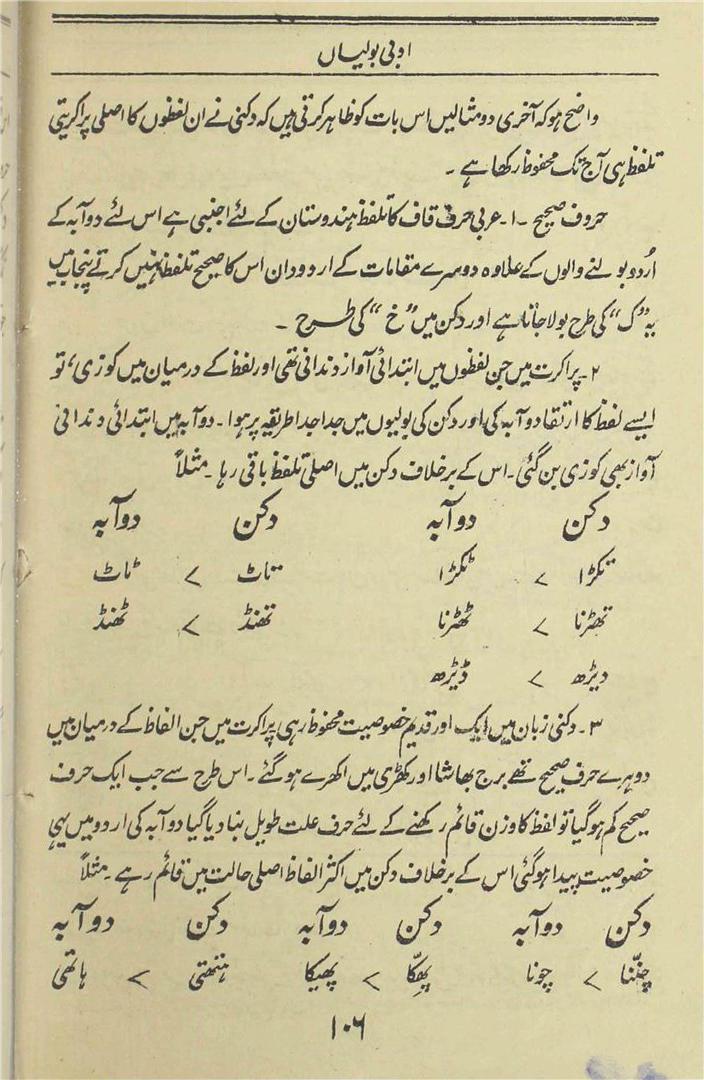 ادبی بولیاں
واضح ہو کہ آخری دو مثالیں اس بات کو ظاہر کرتی ہیں کہ دکنی نے ان لفظوں کا اصلی پراکرتی
تلفظ ہی آج تک محفوظ رکھا ہے ۔
حروف صحیح ۔ ۱۔ عربی حرف قاف کا تلفظ ہندوستان کے لئے اجنبی ہے اس لئے دوآبہ کے
اُردو بولنے والوں کے علاوہ دوسرے مقامات کے اردو دان اس کا صحیح تلفظ نہیں کرتے پنجاب میں
یہ ”ک“ کی طرح بولا جاتا ہے اور دکن میں ”خ“ کی طرح ۔
۲۔ پراکرت میں جن لفظوں میں ابتدائی آواز دندانی تھی اور لفظ کے درمیان میں کوزی، تو
ایسے لفظ کا ارتقا دوآبہ کی اور دکن کی بولیوں میں جدا جدا طریقہ پر ہوا ۔ دوآبہ میں ابتدائی دندانی
آواز بھی کوزی بن گئی ۔ اس کے برخلاف دکن میں اصلی تلفظ باقی رہا ۔ مثلاً
دکن دوآبہ دکن دوآبہ
تکڑا > ٹکڑا تاٹ > ٹاٹ
تھڑنا > ٹھڑنا تھنڈ > ٹھنڈ
دیڑھ > ڈیڑھ
۳۔ دکنی زبان میں ایک اور قدیم خصوصیت محفوظ رہی پراکرت میں جن الفاظ کے درمیان میں
دوہرے حرف صحیح تھے برج بھاشا اور کھڑی میں اکھرے ہو گئے ۔ اس طرح سے جب ایک حرف
صحیح کم ہو گیا تو لفظ کا وزن قائم رکھنے کے لئے حرف علت طویل بنا دیا گیا دوآبہ کی اردو میں یہی
خصوصیت پیدا ہو گئی اس کے برخلاف دکن میں اکثر الفاظ اصلی حالت میں قائم رہے ۔ مثلاً
دکن دوآبہ دکن دوآبہ دکن دوآبہ
چنّنا > چونا پھِکّا > پھیکا ہتھی > ہاتھی
۱۰۶